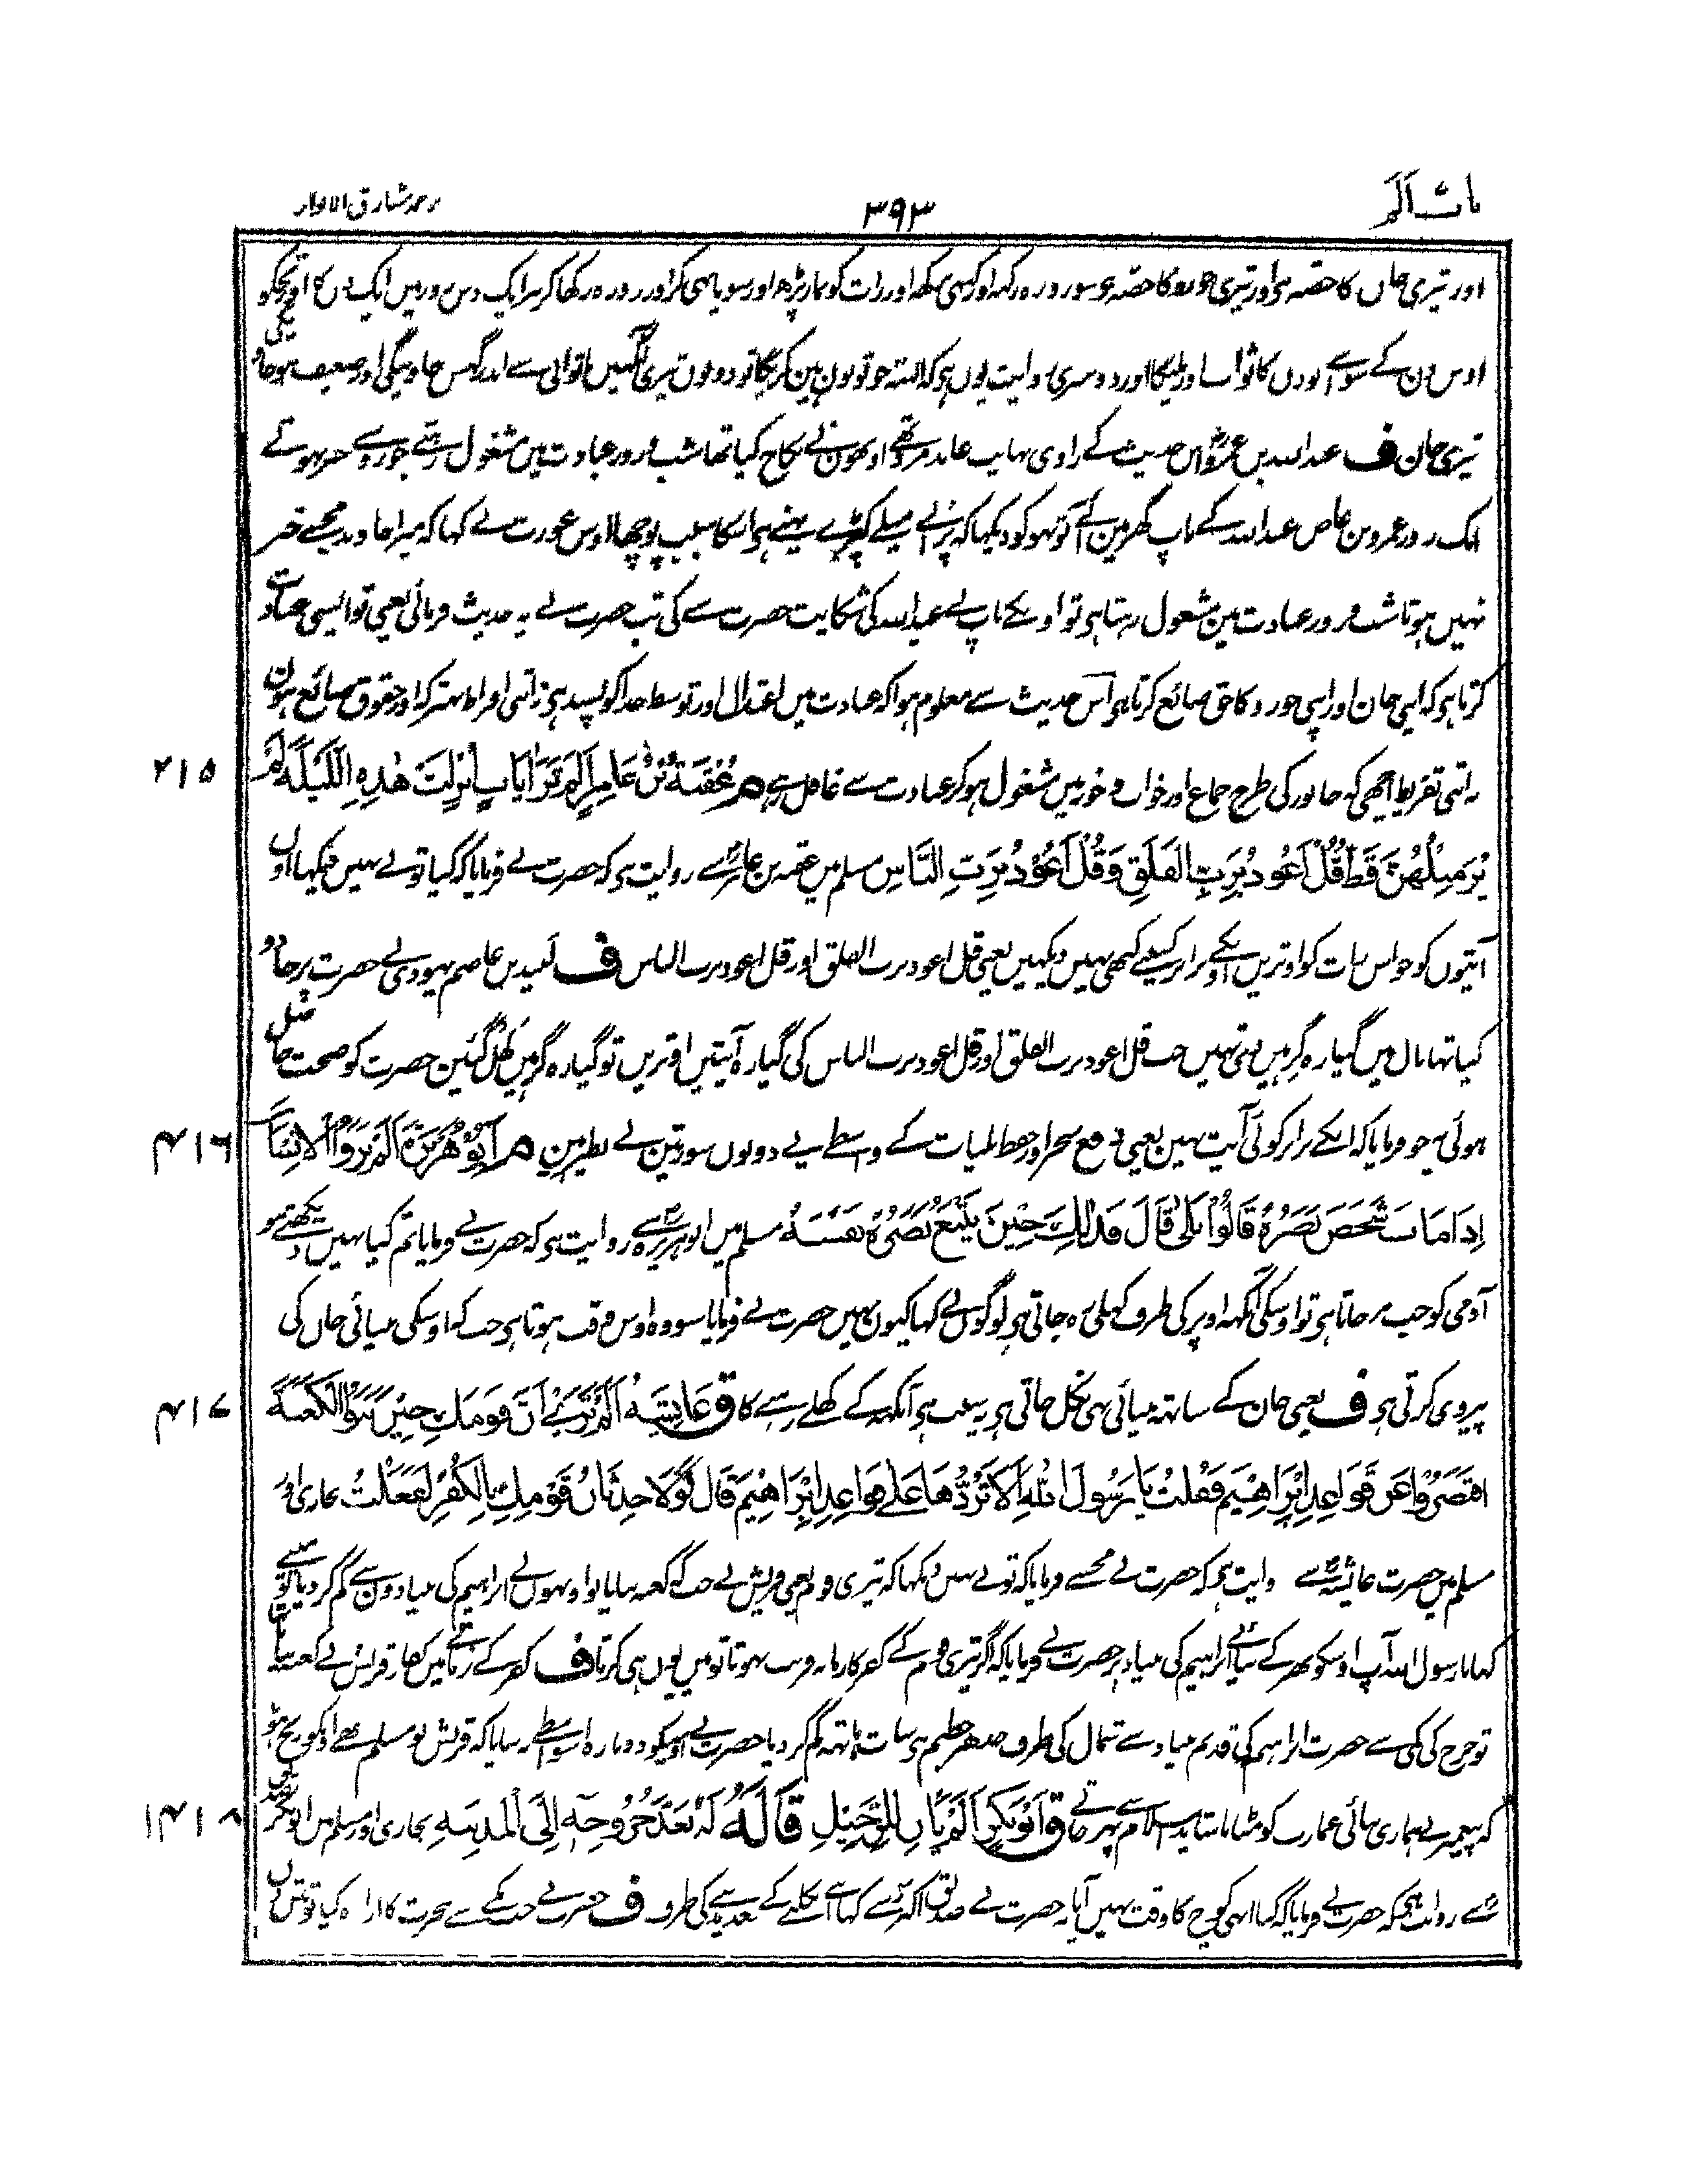 باب الم
۳۹۳
ترجمہ مشارق الانوار
اور تیری جان کا حصہ ہی اور تیری جورو کا حصہ ہی سو روزہ رکہہ اور کبھی نرکھ اور رات کو نماز پڑھ اور سویا بہی کر اور روزہ رکھا کر ہر ایک دس روز میں ایک دن کا اور تجکو
اوس دن کے سوائے نو دن کا ثواب اور ملیگا اور دوسری روایت یوں ہی کہ البتہ جو تو یوں ہین کریگا تو دونوں تیری آنکہیں ناتوانی سے اندر گھس جاوینگی اور ضعیف ہو جائیگی
تیری جان ف عبداللہ بن عمرو اس حدیث کے راوی نہایت عابد مرد تھے اونھوں نے نکاح کیا تھا شب و روز عبادت میں مشغول رہتے جورو سے خبر نہوتے
ایک روز عمرو بن عاص عبداللہ کے باپ گھر مین آئے تو بہو کو دیکہا کہ پرانے میلے کپڑے پہنے ہی اسکا سبب پوچھا اوس عورت نے کہا کہ میرا خاوند مجھسے خبر
نہیں ہوتا شب و روز عبادت مین مشغول رہتا ہی تو اونکے باپ نے عبداللہ کی شکایت حضرت سے کی تب حضرت نے یہ حدیث فرمائی یعنی تو ایسی عبادت
کرتا ہی کہ اپنی جان اور اپنی جورو کا حق ضائع کرتا ہی اس حدیث سے معلوم ہوا کہ عبادت میں اعتدال اور توسط خدا کو پسند ہی نہ اتنی افراط بہتر کہ اور حقوق ضائع ہون
۴۱۵
نہ اتنی تفریط اچھی کہ جانور کی طرح جماع اور خواب و خور میں مشغول ہو کر عبادت سے غافل رہے م عُقْبَةُ بْنُ عَامِرٍ اَلَمْ تَرَ اٰیَاتٍ اُنْزِلَتْ هٰذِهِ اللَّیْلَةَ لَمْ
یُرَ مِثْلُهُنَّ قَطُّ قُلْ اَعُوْذُ بِرَبِّ الْفَلَقِ وَقُلْ اَعُوْذُ بِرَبِّ النَّاسِ مسلم میں عقبہ بن عامر سے روایت ہی کہ حضرت نے فرمایا کہ کیا تو نے نہیں دیکہا اون
آیتوں کو جو اس رات کو اوتریں اونکے برابر کسینے کبھی نہیں دیکہیں یعنی قل اعوذ برب الفلق اور قل اعوذ برب الناس ف لبید بن عاصم یہودی نے حضرت پر جادو
کیا تہا بال میں گیارہ گرہیں دی تہیں جب قل اعوذ برب الفلق اور قل اعوذ برب الناس کی گیارہ آیتیں اوتریں تو گیارہ گرہیں کھل گئین حضرت کو صحت حاصل
۴۱۶
ہوئی یہ جو فرمایا کہ انکے برابر کوئی آیت نہین یعنی دفع سحر اور حفظ بلیات کے واسطے یے دونوں سورتین بے نظیر ہین م اَبُوْ هُرَیْرَةَ اَلَمْ تَرَوُا الْاِنْسَانَ
اِذَا مَاتَ شَخَصَ بَصَرُهُ قَالُوْا بَلٰی قَالَ فَذٰلِكَ حِیْنَ یَتْبَعُ بَصَرُهُ نَفْسَهُ مسلم میں ابو ہریرہ سے روایت ہی کہ حضرت نے فرمایا تم کیا نہیں دیکھتے ہو
آدمی کو جب مر جاتا ہی تو اوسکی آنکہہ اوپر کی طرف کہلی رہ جاتی ہی لوگوں نے کہا کیوں نہیں حضرت نے فرمایا سو وہ اوس وقت ہوتا ہی جب کہ اوسکی بینائی جان کی
۴۱۷
پیروی کرتی ہی ف یعنی جان کے ساتہہ بینائی بہی نکل جاتی ہی یہ سبب ہی آنکہہ کے کھلے رہنے کا ق عَایِشَةُ اَلَمْ تَرَیْ اَنَّ قَوْمَكِ حِیْنَ بَنَوُا الْكَعْبَةَ
اقْتَصَرُوْا عَنْ قَوَاعِدِ اِبْرَاهِیْمَ فَقُلْتُ یَا رَسُوْلَ اللهِ اَلَا تَرُدُّهَا عَلٰی قَوَاعِدِ اِبْرَاهِیْمَ قَالَ لَوْلَا حِدْثَانُ قَوْمِكِ بِالْكُفْرِ لَفَعَلْتُ بخاری اور
مسلم میں حضرت عائشہ سے روایت ہی کہ حضرت نے مجھسے فرمایا کہ تو نے نہیں دیکہا کہ تیری قوم یعنی قریش نے جب کہ کعبہ بنایا تو اونہوں نے ابراہیم کی بنیادون سے کم کر دیا تو مینے
کہا یا رسول اللہ آپ اوسکو پھر کے بنائیے ابراہیم کی بنیاد پر حضرت نے فرمایا کہ اگر تیری قوم کے کفر کا زمانہ قریب نہوتا تو میں یوں ہی کرتا ف کفر کے زمانے میں کفار قریش نے کعبہ بنایا
تو خرچ کی کمی سے حضرت ابراہیم کی قدیم بنیاد سے شمال کی طرف جدھر حطیم ہی سات ہاتہہ کم کر دیا حضرت نے اوسکو دوبارہ اسواسطے نہ بنایا کہ قریش نو مسلم تھے اونکو رنج ہوتا
۴۱۸
کہ پیغمبر نے ہماری بنائی عمارت کو مٹایا شاید اسلام سے پھر جاتے ق اَبُوْ بَكْرٍ اَلَمْ یَاْنِ لِلرَّحِیْلِ قَالَهُ لَهُ بَعْدَ خُرُوْجِهِ اِلَی الْمَدِیْنَةِ بخاری اور مسلم میں ابو بکر
سے روایت ہی کہ حضرت نے فرمایا کہ کیا ابہی کوچ کا وقت نہیں آیا یہ حضرت نے صدیق اکبر سے کہا مکے سے نکلنے کے بعد مدینے کی طرف ف حضرت نے جب مکے سے ہجرت کا ارادہ کیا تو تین